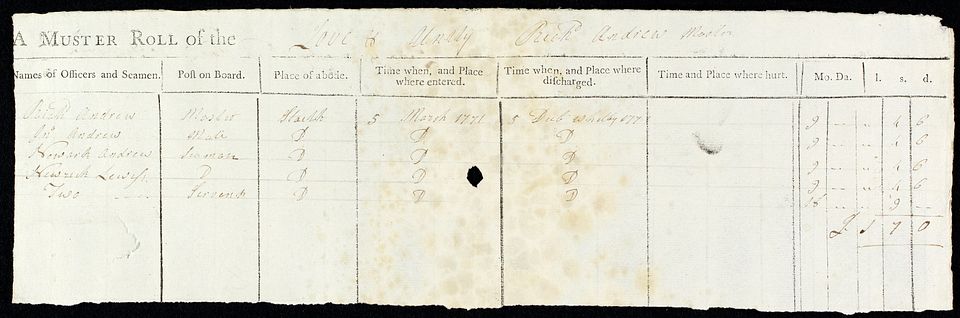 A MUSTER ROLL of the Love & Unity Richd Andrew Master
Names of Officers and Seamen. Post on Board. Place of abode. Time when, and Place where entered. Time when, and Place where discharged. Time and Place where hurt. Mo. Da. l. s. d.
Richd Andrew Master 5 March 1771 5 9 4 6
Jno Andrew Mate D D D 9 4 6
Andrew Seaman D D D 9 4 6
D D D D 9 4 6
Two Servants D D D 18 9
1 7 0